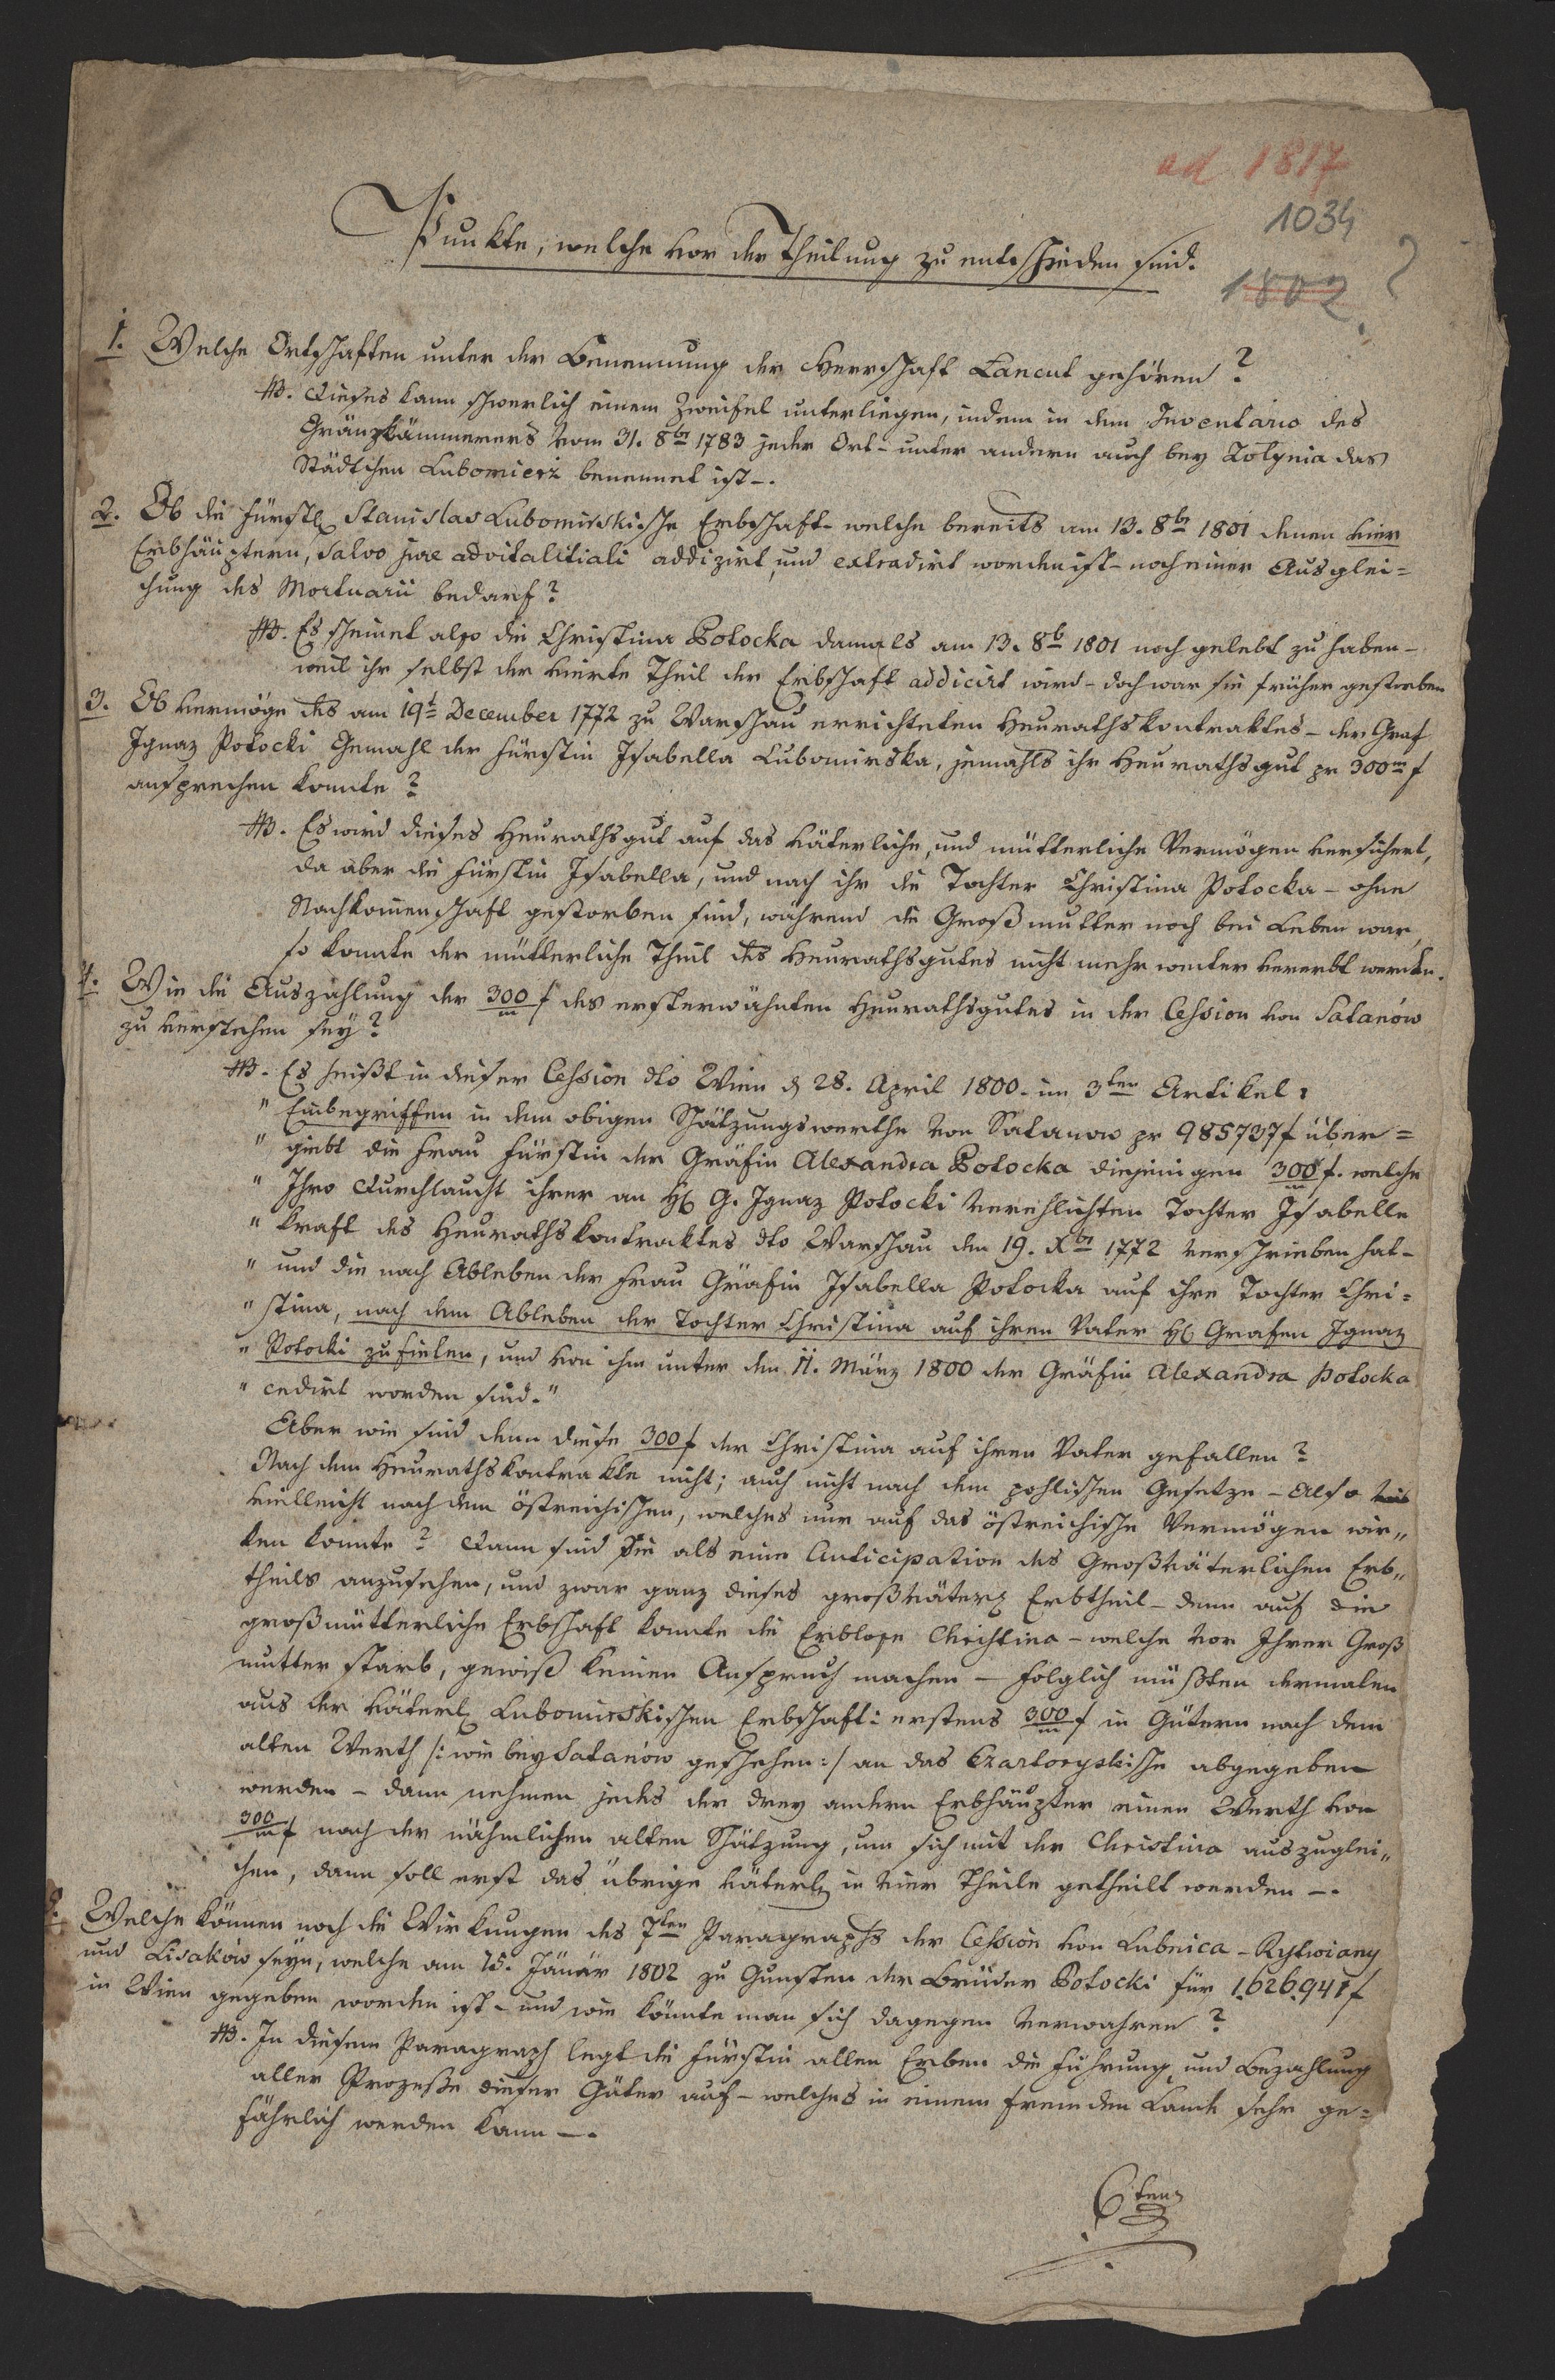 ad 1817
1034
1802 ?
Punkte, welche vor der Theilung zu entschieden sind.
1. Welche Ortschaften unter der Benennung der Herrschaft Łancut gehören?
NB. Dieses kann schwerlich einem Zweifel unterliegen, indem in dem Inventario des
Gränzkämmerers vom 31. 8br 1783 jeder Ort - unter andern auch bey Zolynia das
Städtchen Lubomierz benennet ist -.
2. Ob die fürstl Stanislas Lubomirskische Erbschaft - welche bereits am 13. 8br 1801 denen vier
Erbhäuptern, salvo jure advitalitiali addizirt, und extradirt worden ist - noch einer Ausglei=
chung des Mortuarii bedarf?
NB. Es scheinet also die Christina Potocka damals am 13. 8b 1801 noch gelebt zu haben -
weil ihr selbst der vierte Theil der Erbschaft addicirt wird - doch war sie früher gestorben
3. Ob vermöge des am 19t December 1772 zu Warschau errichteten Heurathskontraktes - der Graf
Ignaz Potocki Gemahl der Fürstin Isabella Lubomirska, jemahls ihr Heurathsgut pr 300m f
ansprechen konnte?
NB. Es wird dieses Heurathsgut auf das väterliche, und mütterliche Vermögen versichert,
da aber die Fürstin Isabella, und nach ihr die Tochter Christina Potocka - ohne
Nachkommenschaft gestorben sind, während die Großmutter noch bei Leben war,
so konnte der mütterliche Theil des Heurathsgutes nicht mehr weiter vererbt werden.
4. Wie die Auszahlung der 300 m f des ersterwähnten Heurathsgutes in der Cession von Satanów
zu verstehen sey?
NB. Es heißt in dieser Cession dto Wien d 28. April 1800. im 3ten Artikel:
" Einbegriffen in dem obigen Schätzungswerthe von Satanow pr 985737 f über=
" giebt die Frau Fürstin der Gräfin Alexandra Potocka diejenigen 300 m f. welche
" Ihro Durchlaucht ihrer an H G. Ignaz Potocki verehlichten Tochter Isabelle
" kraft des Heurathskontraktes dto Warschau den 19. Xbr 1772 verschrieben hat -
" und die nach Ableben der Frau Gräfin Isabella Potocka auf ihre Tochter Chri=
" stina, nach dem Ableben der Tochter Christina auf ihren Vater H Grafen Ignaz
" Potocki zufielen, und von ihm unter den 11. März 1800 der Gräfin Alexandra Potocka
" cedirt worden sind."
Aber wie sind denn diese 300 f der Christina auf ihren Vater gefallen?
Nach dem Heurathskontrakte nicht; auch nicht nach dem pohlischen Gesetze - Also
vielleicht nach dem östreichischen, welches nur auf das östreichische Vermögen wir„
ken konnte? Dann sind Sie als eine Anticipation des Großväterlichen Erb„
theils anzusehen, und zwar ganz dieses großväterl Erbtheil - denn auf die
großmütterliche Erbschaft konnte die Erblose Christina - welche vor Ihrer Groß
mutter starb, gewiß keinen Anspruch machen - folglich müßten dermalen
aus der väterl Lubomirskischen Erbschaft: erstens 300 m f in Gütern nach dem
alten Werth /: wie bey Satanów geschehen :/ an das Czartoryskische abgegeben
werden - dann nehmen jedes der drey andern Erbhäupter einen Werth von
300 m f nach der nähmlichen alten Schätzung, um sich mit der Christina auszuglei„
chen, dann soll erst das übrige väterl in vier Theile getheilt werden -.
Welche können noch die Wirkungen des 7ten Paragraphs der Cession von Lubnica - Rytwiany
und Lisaków seyn, welche am 15. Jänär 1802 zu Gunsten der Brüder Potocki für 1,626,941 f
in Wien gegeben worden ist - und wie könnte man sich dagegen verwahren?
NB. In diesem Paragraph legt die Fürstin allen Erben die Führung und Bezahlung
aller Prozeße dieser Güter auf - welches in einem fremden Lande sehr ge=
fährlich werden kann -.